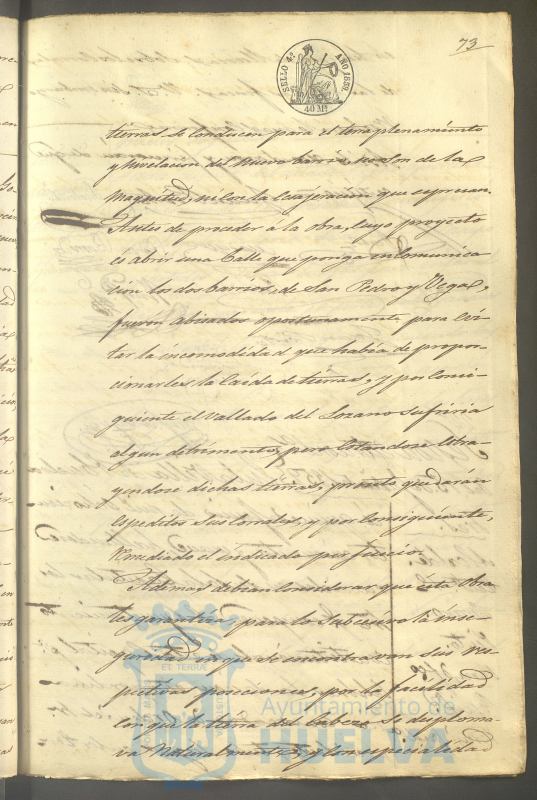 73
SELLO 4º AÑO 1859.
40 Ms
tierras se conducen para el terraplenamiento
y Nivelacion del Nuevo barrio no son de la
Magnitud, ni con la Exageracion que espresan.
Antes de proceder a la obra, cuyo proyecto
es abrir una Calle que ponga en Comunica
cion los dos barrios, de San Pedro y Vega,
fueron Abisados oportunamente para evi-
tar la incomodidad que habia de propor-
cionarles la Caida de tierras, y por Consi-
guiente el Vallado del Lozano sufriria
algun detrimento, pero Estandose Estra-
yendose dichas tierras, pronto quedarán
Espeditos sus Corrales, y por Consiguiente,
Remediado el indicado perjuicio.
Ademas debian Considerar que esta Obra
les garantiza para lo Subcesivo la inse-
guridad en que se encontravan sus res-
pectivas posesiones, por la facilidad
en que la tierra del Cabezo se desploma-
va Naturalmente y con especialidad
ET TERRAE
Ayuntamiento de
HUELVA